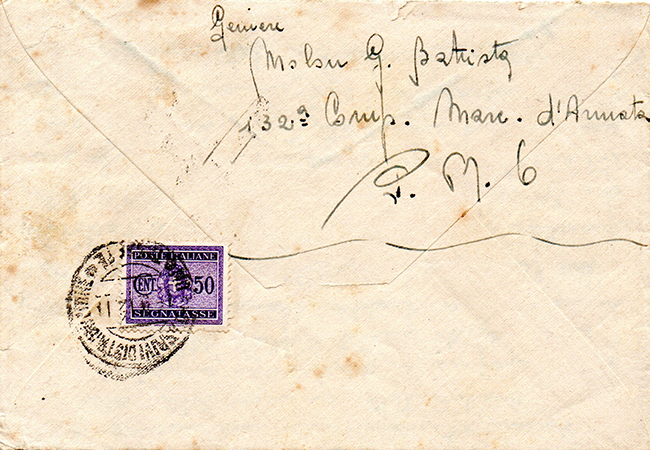 Geniere
G. Battista
132ª Comp. Marc. d'Armata
P. M. 6
POSTE ITALIANE
CENT. 50
SEGNATASSE